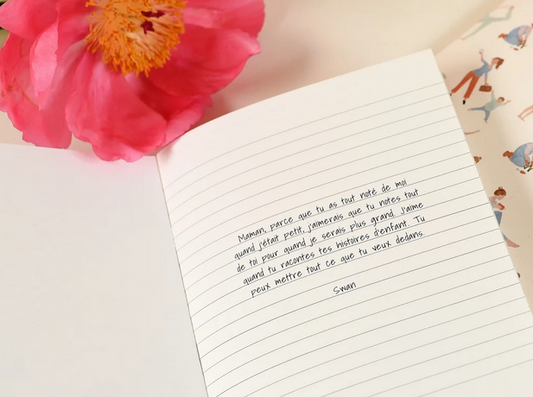 Maman, parce que tu as tout noté de moi
quand j'était petit, j'aimerais que tu notes tout
de toi pour quand je serais plus grand. J'aime
quand tu racontes tes histoires d'enfant. Tu
peux mettre tout ce que tu veux dedans.
Swan